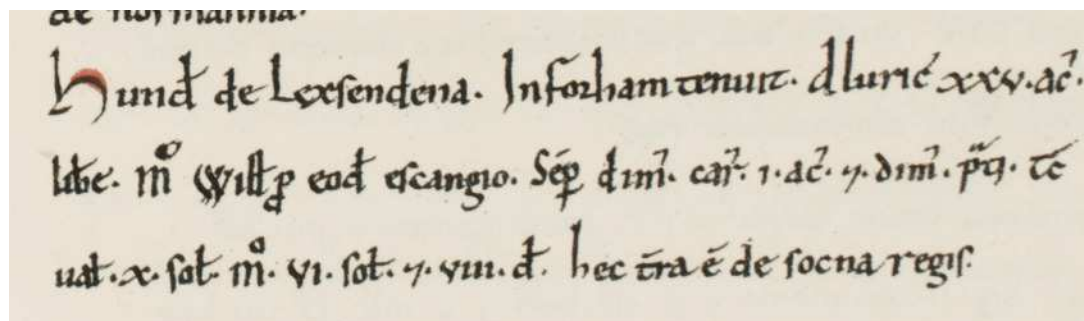 de normannia.
Hund de Lexsendena. In forham tenuit. Aluric xxv. ac.
libe. m° Will p eod escangio. Sep dim. car. 1. ac. 7. dim. pti. Tc
ual. x. sol. m°. vi. sol. 7. viii. d. hec tra ē de socna regis.